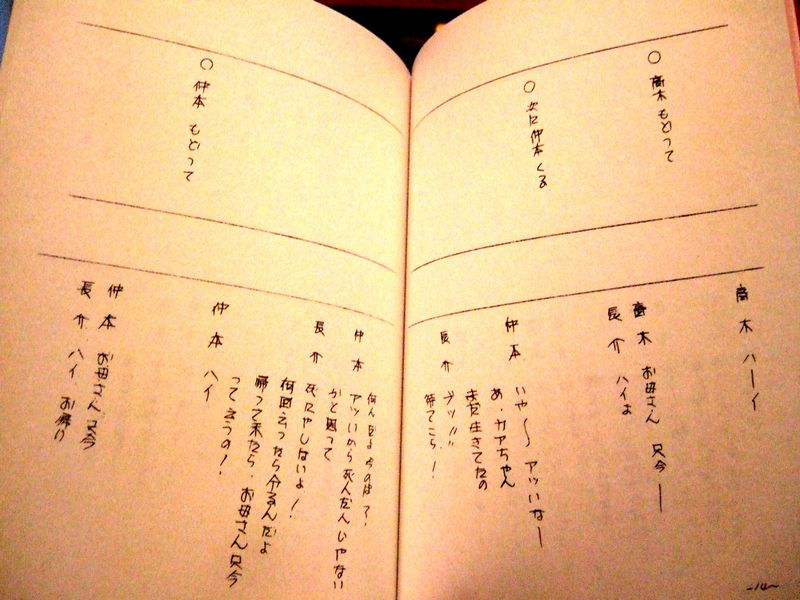 ○ 高木 もどって
○ 次に仲本くる
高木 ハーイ
高木 お母さん 只今ー
長介 ハイよ
仲本 いや〜〜 アツいなー
あ・カアちゃん
まだ生きてたの
長介 ブッ!!!
待てこら!
○ 仲本 もどって
何んだよ のは?
仲本 アツいから死んだんじゃない
かと思って
長介 死にやしないよ!
何回云ったら分るんだよ
帰って来たら、お母さん只今
って云うの!
仲本 ハイ
仲本 お母さん只今
長介 ハイ お帰り
-14-